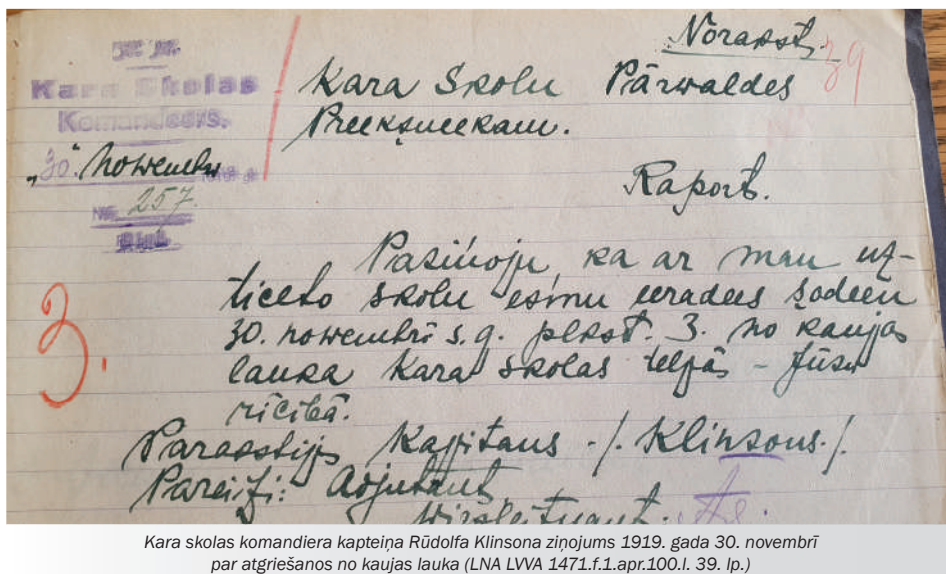 Norakst.
39
Kara Skolas
Komandeers.
"30." nowembrī
No. 257.
Kara Skolu Pārwaldes
Preeksneekam.
Raport.
3.
Pasiņoju, ka ar man uz-
ticeto skolu esmu eeradees šodeen
30. nowembrī s.g. plkst. 3. no kaujas
lauka Kara skolas telpās – Jūsu
rīcībā.
Parakstijis Kapitans ./. Klinsons./.
Pareizi: Adjutants,
Virsleitnants.
Kara skolas komandiera kapteiņa Rūdolfa Klinsona ziņojums 1919. gada 30. novembrī
par atgriešanos no kaujas lauka (LNA LVVA 1471.f.1.apr.100.l. 39. lp.)